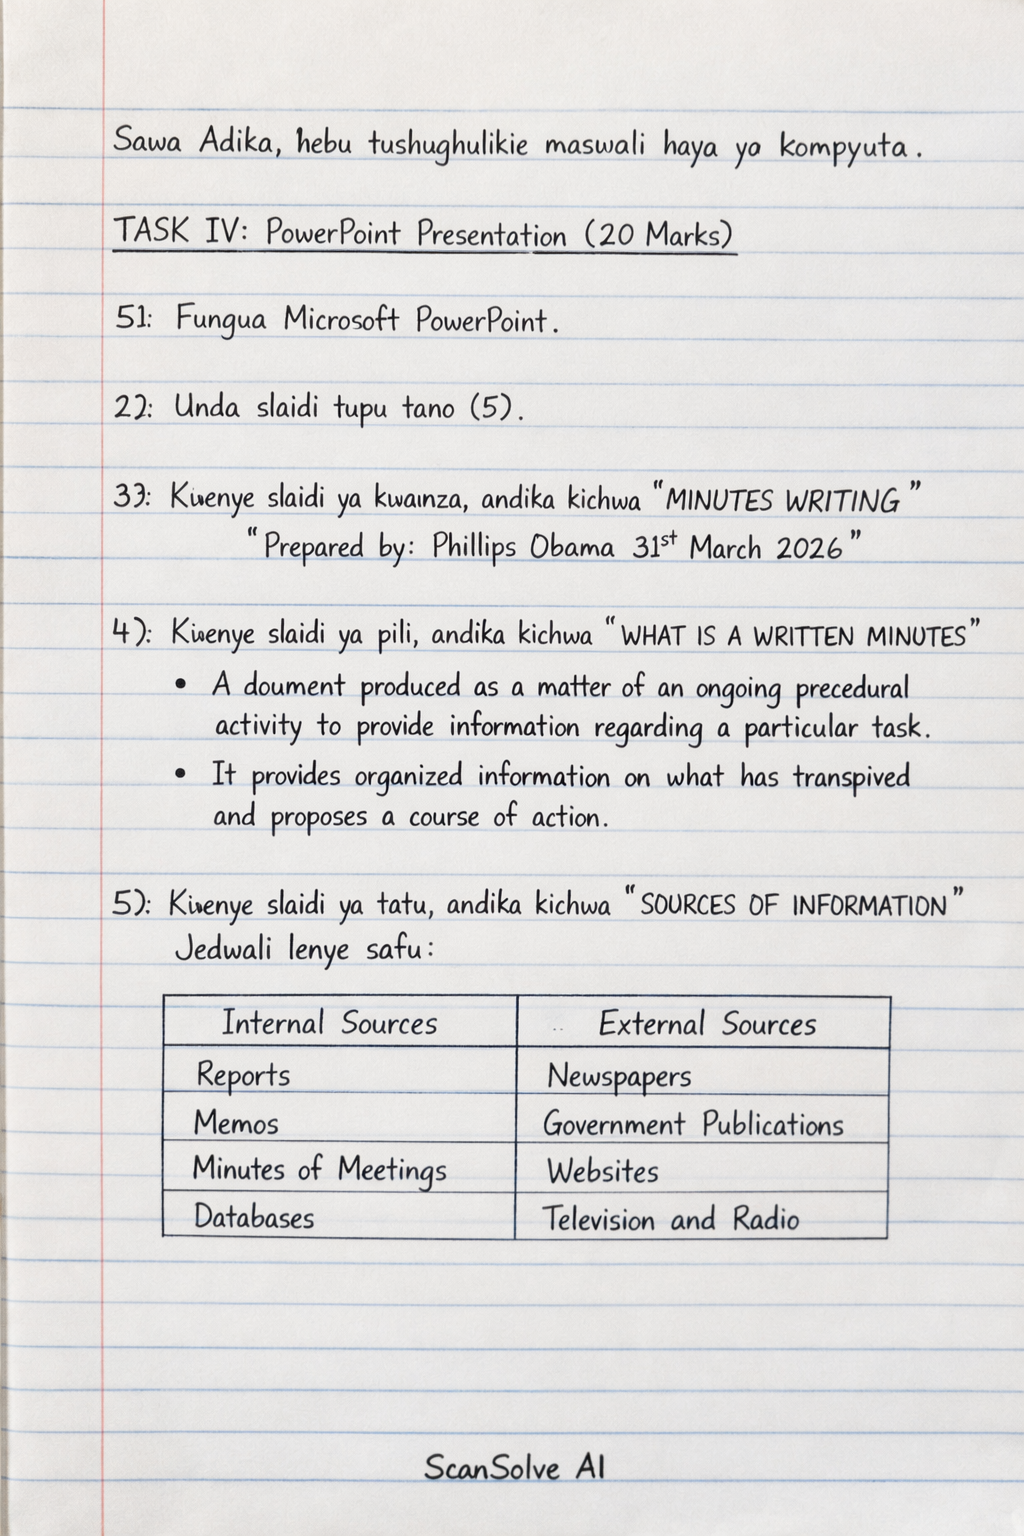 Sawa Adika, hebu tushughulikie maswali haya ya kompyuta.
TASK IV: PowerPoint Presentation (20 Marks)
51: Fungua Microsoft PowerPoint.
22: Unda slaidi tupu tano (5).
33: Kwenye slaidi ya kwanza, andika kichwa "MINUTES WRITING"
"Prepared by: Phillips Obama 31st March 2026"
4): Kwenye slaidi ya pili, andika kichwa "WHAT IS A WRITTEN MINUTES"
• A doument produced as a matter of an ongoing precedural
activity to provide information regarding a particular task.
• It provides organized information on what has transpived
and proposes a course of action.
5): Kwenye slaidi ya tatu, andika kichwa "SOURCES OF INFORMATION"
Jedwali lenye safu:
Internal Sources External Sources
Reports Newspapers
Memos Government Publications
Minutes of Meetings Websites
Databases Television and Radio
ScanSolve AI